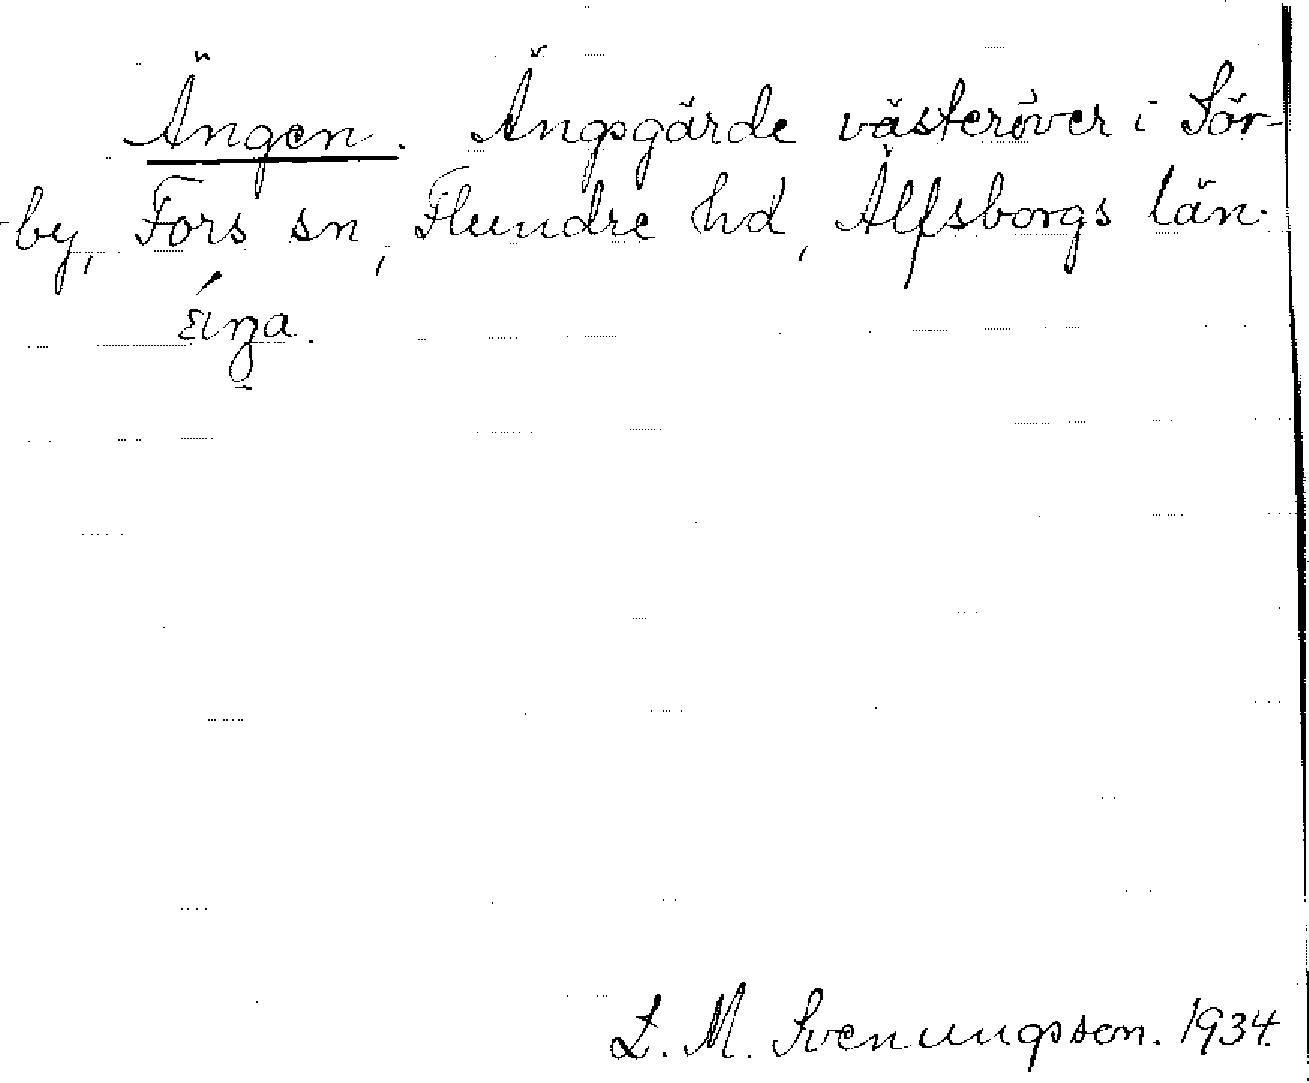 Ängen. Ängsgärde västeröver i Sör-
by, Fors sn, Flundre hd, Älfsborgs län.
L. M. Svenungsson. 1934.